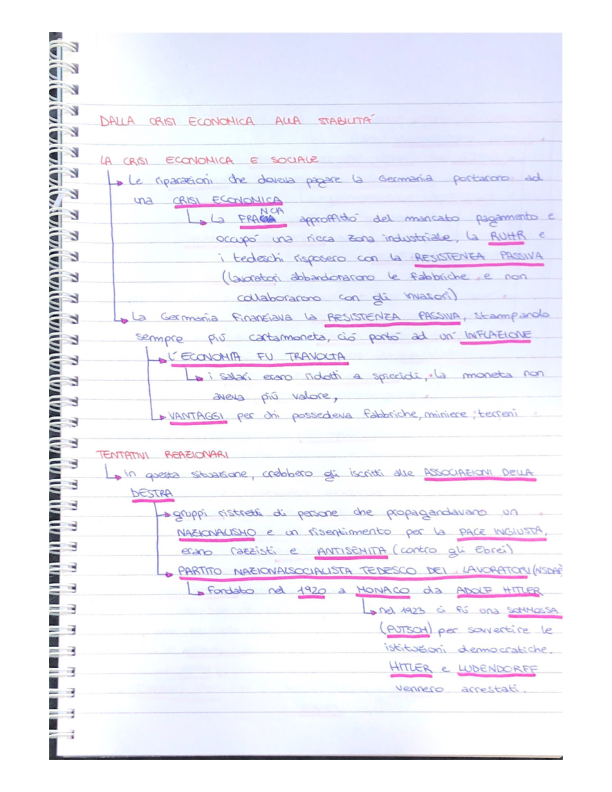 DALLA CRISI ECONOMICA ALLA STABILITÀ
LA CRISI ECONOMICA E SOCIALE
Le riparazioni che doveva pagare la Germania portarono ad
una CRISI ECONOMICA
La FRANCIA approffittò del mancato pagamento e
occupò una ricca zona industriale, la RUHR e
i tedeschi risposero con la RESISTENZA PASSIVA
(lavoratori abbandonarono le fabbriche e non
collaborarono con gli invasori)
La Germania finanziava la RESISTENZA PASSIVA, stampando
sempre più cartamoneta, ciò portò ad un' INFLAZIONE
L'ECONOMIA FU TRAVOLTA
i salari erano ridotti a spiccidi, la moneta non
aveva più valore,
VANTAGGI per chi possedeva fabbriche, miniere, terreni
TENTATIVI REAZIONARI
In questa situazione, crebbero gli iscritti alle ASSOCIAZIONI DELLA
DESTRA
gruppi ristretti di persone che propagandavano un
NAZIONALISMO e un risentimento per la PACE INGIUSTA,
erano razzisti e ANTISEMITA (contro gli Ebrei)
PARTITO NAZIONALSOCIALISTA TEDESCO DEI LAVORATORI (NSDAP)
Fondato nel 1920 a MONACO da ADOLF HITLER
nel 1923 ci fù una SOMMOSSA
(PUTSCH) per sovvertire le
istituzioni democratiche.
HITLER e LUDENDORFF
vennero arrestati.